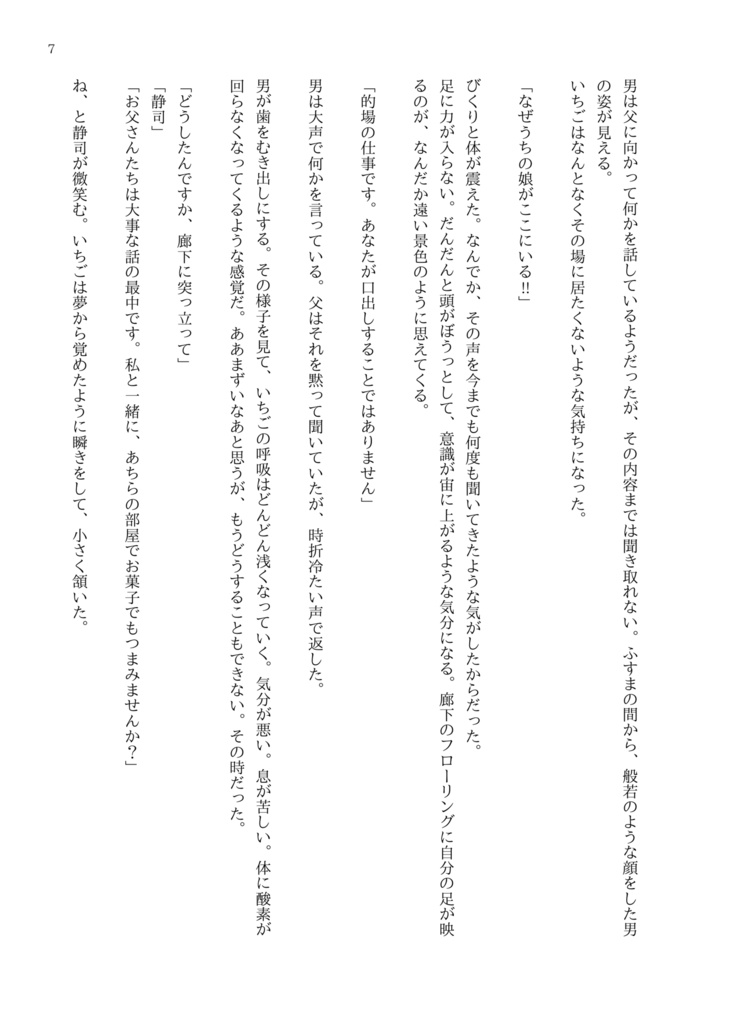 7
男は父に向かって何かを話しているようだったが、その内容までは聞き取れない。ふすまの間から、般若のような顔をした男
の姿が見える。
いちごはなんとなくその場に居たくないような気持ちになった。
「なぜうちの娘がここにいる!!」
びくりと体が震えた。なんでか、その声を今までも何度も聞いてきたような気がしたからだった。
足に力が入らない。だんだんと頭がぼうっとして、意識が宙に上がるような気分になる。廊下のフローリングに自分の足が映
るのが、なんだか遠い景色のように思えてくる。
「的場の仕事です。あなたが口出しすることではありません」
男は大声で何かを言っている。父はそれを黙って聞いていたが、時折冷たい声で返した。
男が歯をむき出しにする。その様子を見て、いちごの呼吸はどんどん浅くなっていく。気分が悪い。息が苦しい。体に酸素が
回らなくなってくるような感覚だ。ああまずいなあと思うが、もうどうすることもできない。その時だった。
「どうしたんですか、廊下に突っ立って」
「静司」
「お父さんたちは大事な話の最中です。私と一緒に、あちらの部屋でお菓子でもつまみませんか?」
ね、と静司が微笑む。いちごは夢から覚めたように瞬きをして、小さく頷いた。